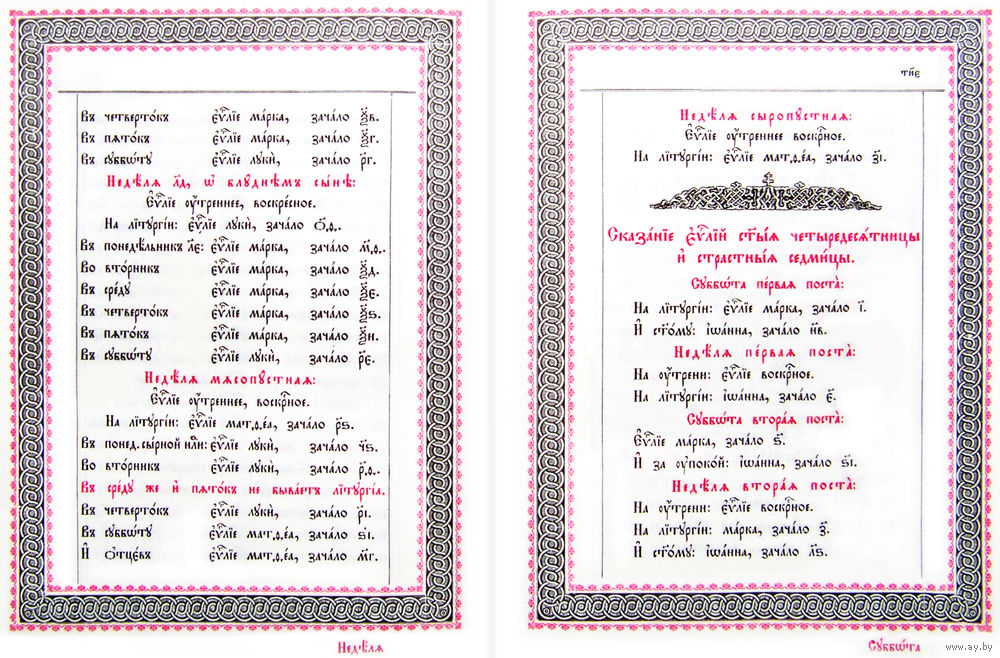 Въ четверто́къ є҆ѵⷢ҇лїе ма́рка, зача́ло ѯ҃в.
Въ пѧто́къ є҆ѵⷢ҇лїе ма́рка, зача́ло ѯ҃г.
Въ сꙋббѡ́тꙋ є҆ѵⷢ҇лїе лꙋкѝ, зача́ло р҃г.
Недѣ́лѧ л҃д, ѡ҆ блꙋ́днѣмъ сы́нѣ:
Є҆ѵⷢ҇лїе ᲂу҆́треннее, воскре́сное.
На лїтꙋргі́и: є҆ѵⷢ҇лїе лꙋкѝ, зача́ло ѻ҃ѳ.
Въ понедѣ́льникъ л҃є: є҆ѵⷢ҇лїе ма́рка, зача́ло м҃ѳ.
Во вто́рникъ є҆ѵⷢ҇лїе ма́рка, зача́ло ѯ҃д.
Въ сре́дꙋ є҆ѵⷢ҇лїе ма́рка, зача́ло ѯ҃є.
Въ четверто́къ є҆ѵⷢ҇лїе ма́рка, зача́ло ѯ҃ѕ.
Въ пѧто́къ є҆ѵⷢ҇лїе ма́рка, зача́ло ѯ҃и.
Въ сꙋббѡ́тꙋ є҆ѵⷢ҇лїе лꙋкѝ, зача́ло р҃є.
Недѣ́лѧ мѧсопꙋ́стнаѧ:
Є҆ѵⷢ҇лїе ᲂу҆́треннее, воскрⷭ҇ное.
На лїтꙋргі́и: є҆ѵⷢ҇лїе матѳе́а, зача́ло р҃ѕ.
Въ понед. сы́рной нⷣли: є҆ѵⷢ҇лїе лꙋкѝ, зача́ло ч҃ѕ.
Во вто́рникъ є҆ѵⷢ҇лїе лꙋкѝ, зача́ло р҃ѳ.
Въ сре́дꙋ же и҆ пѧто́къ не быва́етъ лїтꙋргі́а.
Въ четверто́къ є҆ѵⷢ҇лїе лꙋкѝ, зача́ло р҃і.
Въ сꙋббѡ́тꙋ є҆ѵⷢ҇лїе матѳе́а, зача́ло ѕ҃і.
И҆ ѻ҆тцє́въ є҆ѵⷢ҇лїе матѳе́а, зача́ло м҃г.
Недѣ́лѧ
тн҃є
Недѣ́лѧ сыропꙋ́стнаѧ:
Є҆ѵⷢ҇лїе ᲂу҆́треннее воскрⷭ҇ное.
На лїтꙋргі́и: є҆ѵⷢ҇лїе матѳе́а, зача́ло з҃і.
Сказа́нїе є҆ѵⷢ҇лїй ст҃ы́ѧ четыредесѧ́тницы
и҆ стра́стныѧ седми́цы.
Сꙋббѡ́та пе́рваѧ поста̀:
На лїтꙋргі́и: є҆ѵⷢ҇лїе ма́рка, зача́ло і҃.
И҆ ст҃о́мꙋ: і҆ѡа́нна, зача́ло н҃в.
Недѣ́лѧ пе́рваѧ поста̀:
На ᲂу҆́трени: є҆ѵⷢ҇лїе воскрⷭ҇ное.
На лїтꙋргі́и: і҆ѡа́нна, зача́ло є҃.
Сꙋббѡ́та втора́ѧ поста̀:
Є҆ѵⷢ҇лїе ма́рка, зача́ло ѕ҃.
И҆ за ᲂу҆поко́й: і҆ѡа́нна, зача́ло ѕ҃і.
Недѣ́лѧ втора́ѧ поста̀:
На ᲂу҆́трени: є҆ѵⷢ҇лїе воскрⷭ҇ное.
На лїтꙋргі́и: ма́рка, зача́ло з҃.
И҆ ст҃о́мꙋ: і҆ѡа́нна, зача́ло л҃ѕ.
Сꙋббѡ́та
www.ay.by